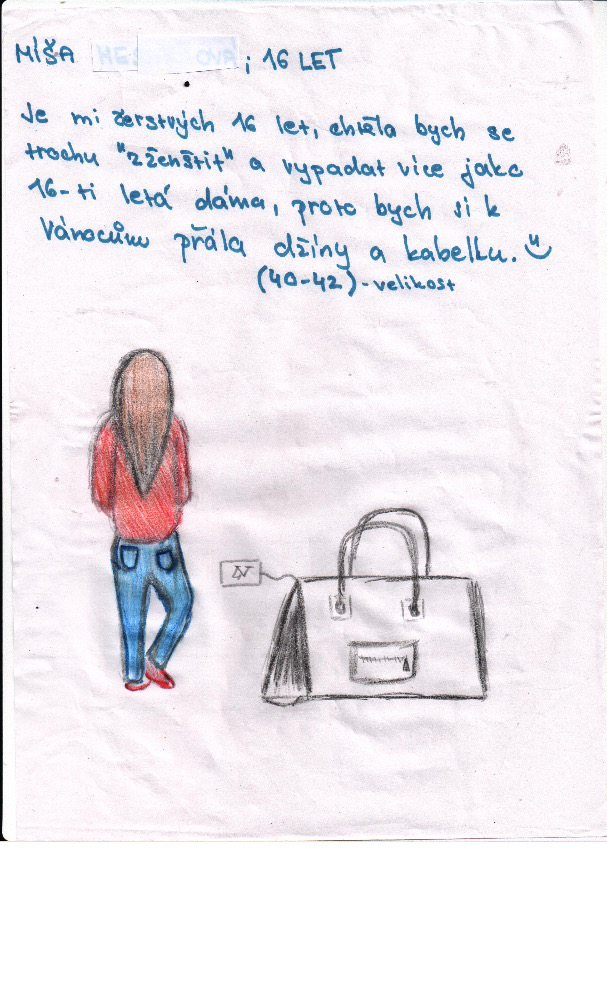 MÍŠA ; 16 LET
Je mi čerstvých 16 let, chtěla bych se
trochu "zženštit" a vypadat více jako
16-ti letá dáma, proto bych si k
Vánocům přála džíny a kabelku.
(40-42)-velikost